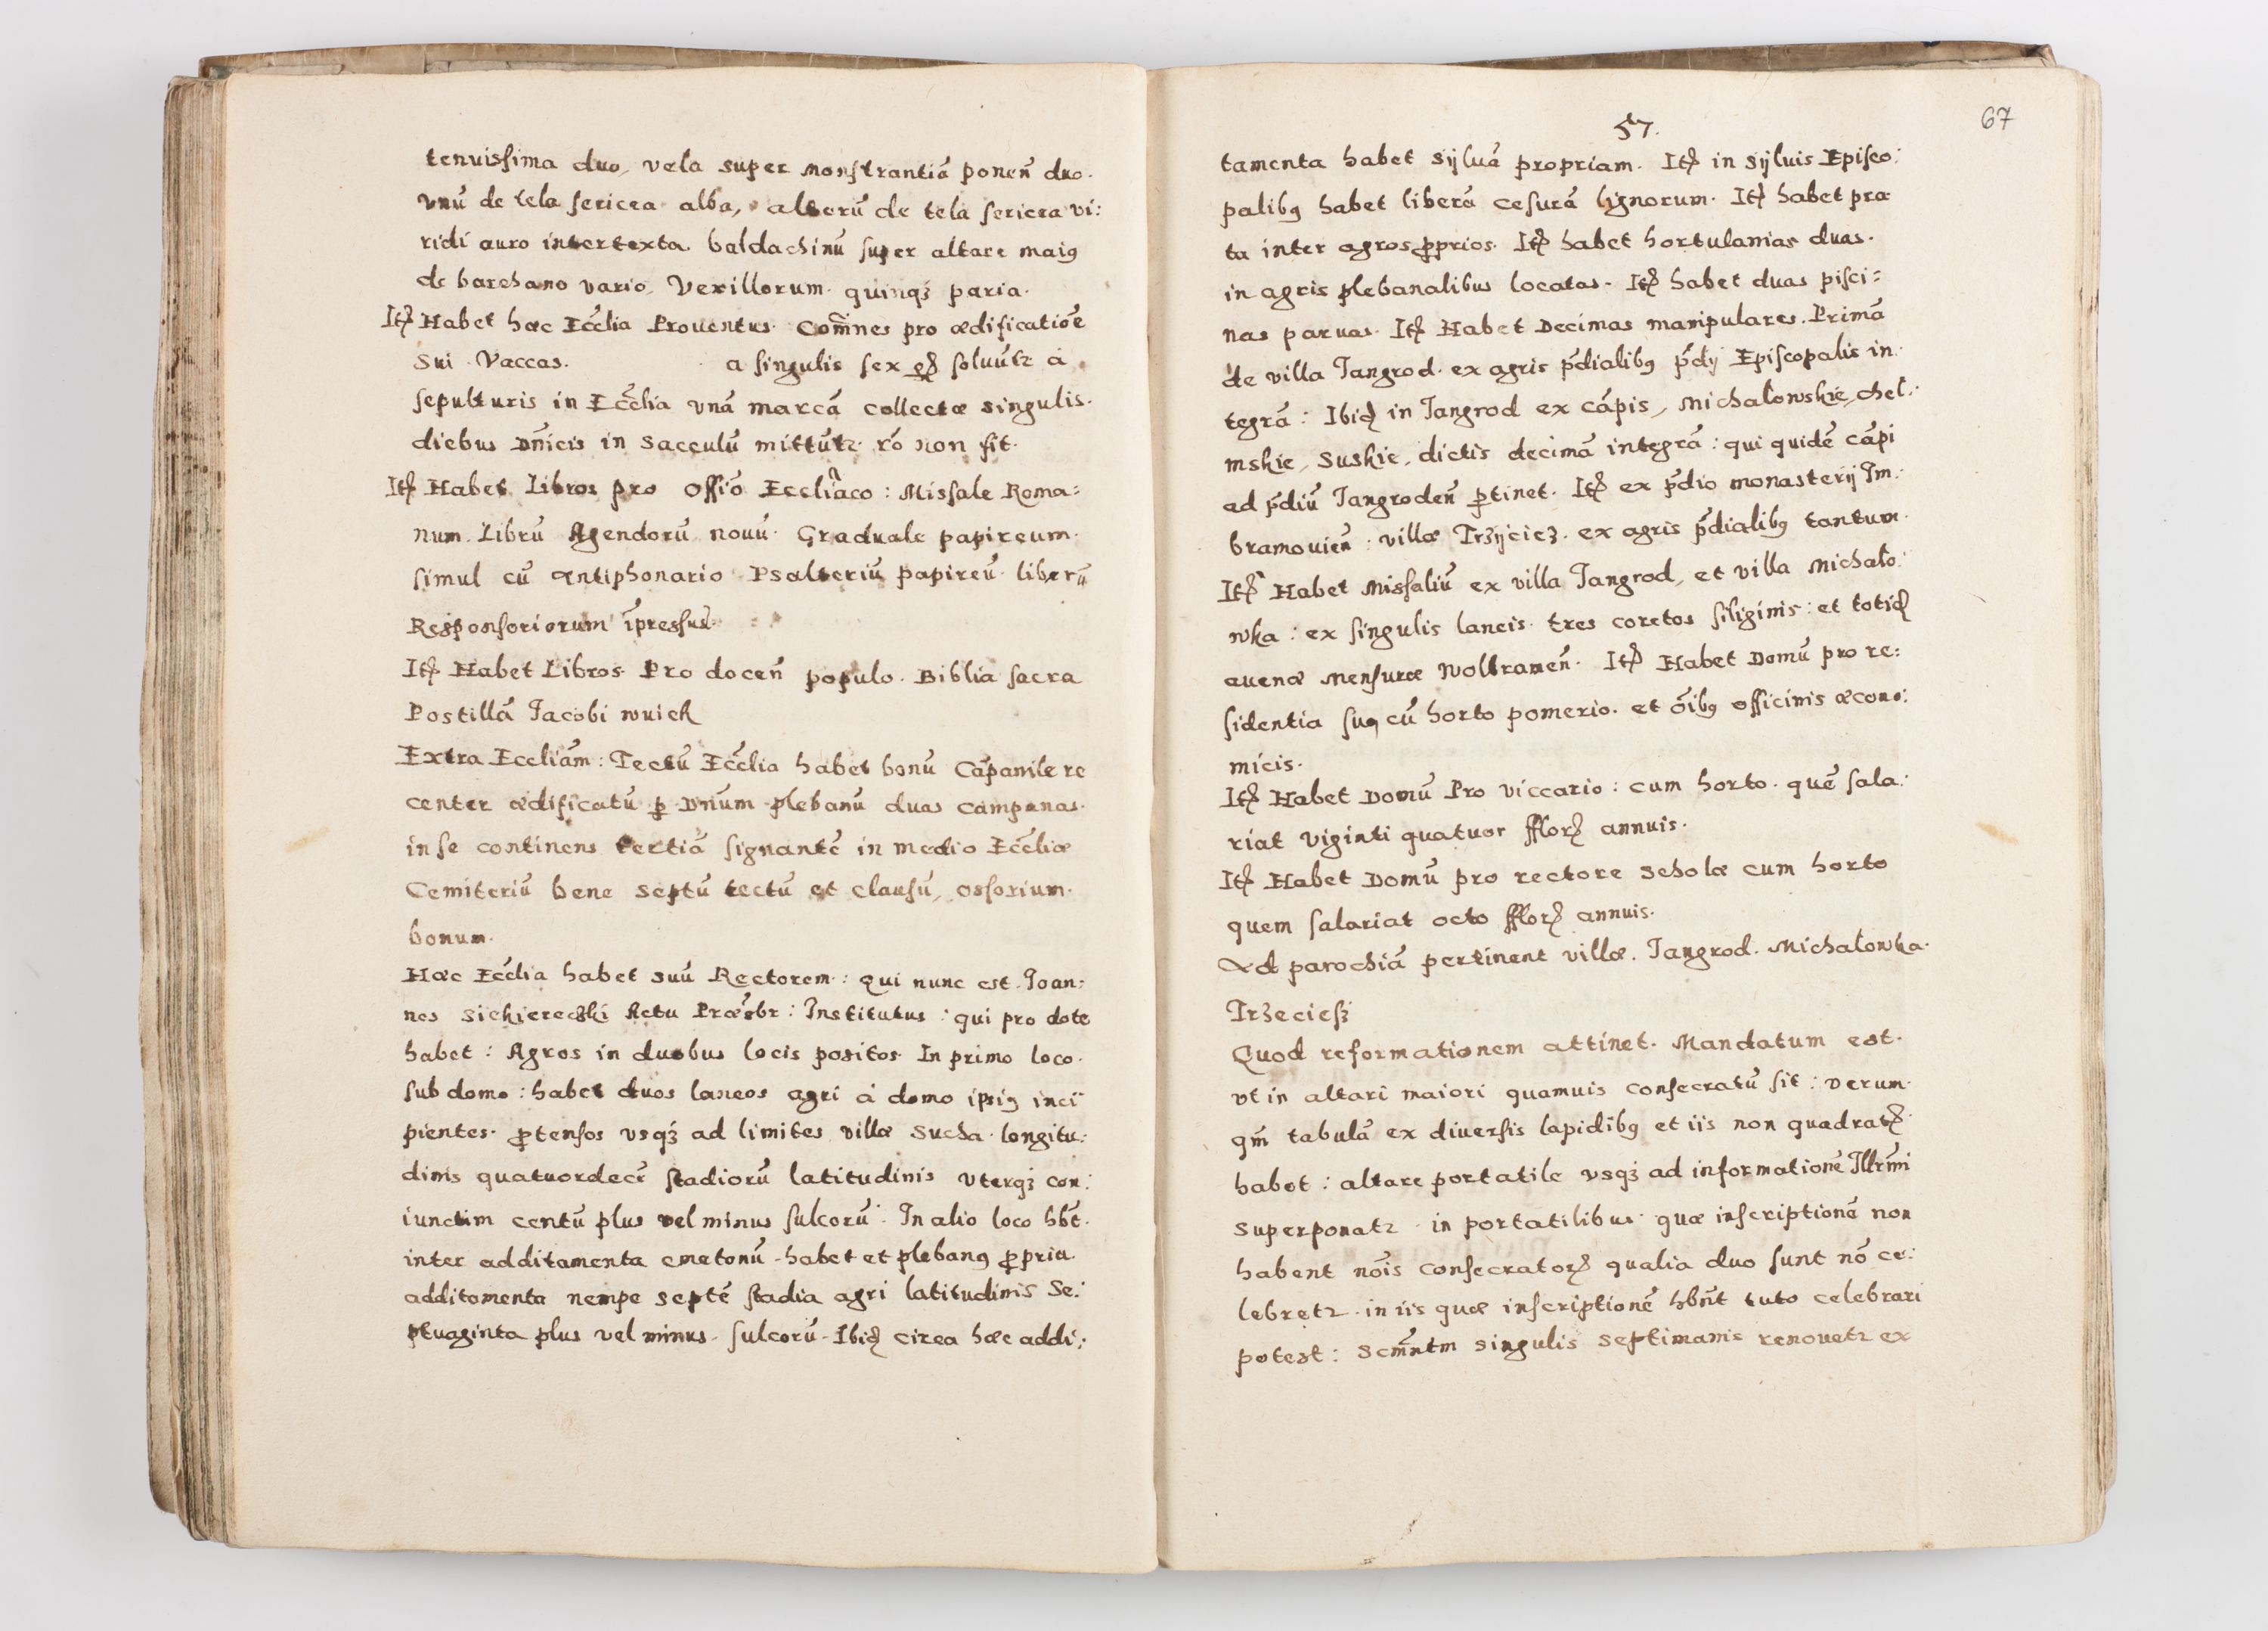 tenuissima duo, vela super monstrantiã ponen̄ duo.
vnũ de tela sericea alba, alterũ de tela sericea vi:
ridi auro intertexta. baldachinũ super altare maiꝰ
de barchano vario. Vexillorum quinqꝫ paria.
Itꝫ Habet hæc Eccl̃ia Prouentus. Com̃nes pro ædificatiõe
sui Vaccas. a singulis sex soluũtr à
sepulturis in Eccl̃ia vnã marcã collectæ singulis
diebus Dn̄icis in sacculũ mittũtr rõ non fit.
Itꝫ Habet Libros pro offiõ Eccliãco: Missale Roma:
num. Librũ Agendorũ nouũ. Graduale papireum.
simul cũ antiphonario Psalteriũ papireũ liber
Responsoriorum ĩpressus.
Itꝫ Habet Libros Pro docen̄ populo. Biblia sacra
Postillã Jacobi wuiek
Extra Eccliãm: Tectũ Eccl̃ia habet bonũ Cãpanile re
center ædificatũ ꝑ Dnũm plebanũ duas campanas
in se continens tertiã signantẽ in medio Eccl̃iæ
Cemiteriũ bene septũ tectũ et clausũ, ossorium
bonum.
Hæc Eccl̃ia habet suũ Rectorem: qui nunc est Joan:
nes Siekiereczki Actu Præsbr: Institutus: qui pro dote
habet: Agros in duobus locis positos In primo loco.
sub domo: habet duos laneos agri à domo ipsiꝰ inci
pientes. ꝓtensos vsqꝫ ad limites villæ Sucha longitu:
dinis quatuordecẽ stadiorũ latitudinis vterqꝫ con:
iunctim centũ plus vel minus sulcorũ. In alio loco hb̃t.
inter additamenta cmetonũ habet et plebanꝰ ꝓpria
additamenta nempe septẽ stadia agri latitudinis Se:
ptuaginta plus vel minus sulcorũ. Ibiđ circa hæc addi:
57.
67
tamenta habet sijluã propriam. Itꝫ in sijluis Episco:
palibꝰ habet liberã cesurã lignorum. Itꝫ habet præ
ta inter agros ꝓprios. Itꝫ habet hortulanias duas.
in agris plebanalibus locatas. Itꝫ habet duas pisci=
nas paruas. Itꝫ Habet Decimas manipulares. Primã
de villa Jangrod ex agris p̃dialibꝰ p̃dij Episcopalis in
tegrã: Ibiđ in Jangrod ex cãpis, Michałowskie, cheł:
mskie, Suskie, dictis decimã integrã: qui quidẽ cãpi
ad p̃diũ Jangroden̄ ꝑtinet. Itꝫ ex p̃dio monasterij Jm:
bramouien̄: villæ Trzijciez. ex agris p̃dialibꝰ tantum.
Itꝫ Habet Missaliũ ex villa Jangrod, et villa Michało:
wka: ex singulis laneis tres coretos siliginis: et totiđ
auenæ mensuræ Wolbramen̄. Itꝫ Habet Domũ pro re:
sidentia sua cũ horto pomerio. et õibꝰ officinis æcono:
micis.
Itꝫ Habet Domũ Pro viccario: cum horto. quẽ sala:
riat viginti quatuor fflorꝫ annuis.
Itꝫ Habet Domũ pro rectore scholæ cum horto
quem salariat octo fflorꝫ annuis.
Ad parochiã pertinent villæ. Jangrod. Michałowka.
Trzeciesz
Quod reformationem attinet. Mandatum est.
vt in altari maiori quamuis consecratũ sit: verum
qm̃ tabulã ex diuersis lapidibꝰ et iis non quadratꝫ
habet: altare portatile vsqꝫ ad informationẽ Jllrm̃i
superponatr in portatilibus quæ inscriptionẽ non
habent nõis consecratorꝫ qualia duo sunt nõ ce:
lebretr. in iis quæ inscriptionẽ hb̃nt tuto celebrari
potest: Scm̃ntm singulis septimanis renouetr ex